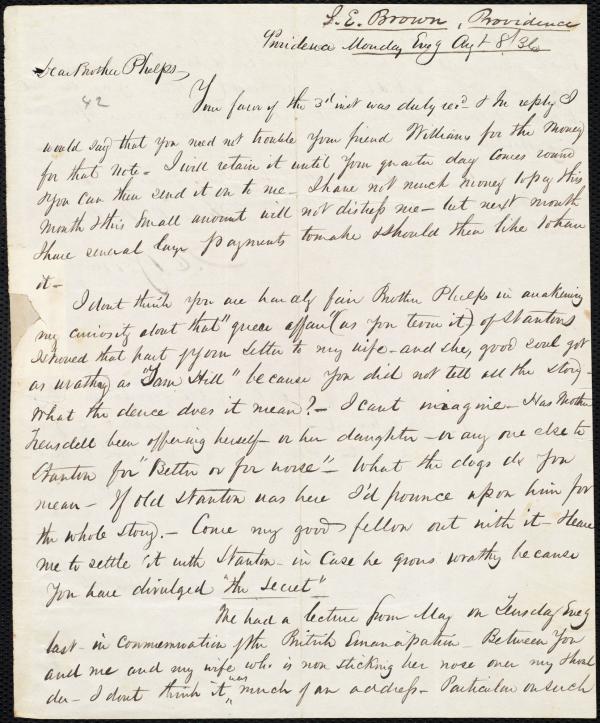 S. E. Brown, Providence
Providence Monday Eveg Augt 8/36
Dear Brother Phelps,
42
Your favor of the 3d inst was duly recd & in reply I
would say that you need not trouble your friend Williams for the money
for that note - I will retain it until your quarter day comes round
& you can then send it on to me - I have not much money to pay this
month & this small amount will not distress me - but next month
I have several large payments to make & should then like to have
it -
I dont think you are hardly fair Brother Phelps in awakening
my curiosity about that "queer affair" (as you term it) of Stantons
I showed that part of your letter to my wife - and she, good soul got
as wrathy as "Sam Hill" because you did not tell all the story -
What the deuce does it mean? - I cant imagine - Has Mother
Truesdell been offering herself - or her daughter - or any one else to
Stanton for "Better or for worse" - What the dogs do you
mean - If old Stanton was here I'd pounce upon him for
the whole story. - Come my good fellow out with it - Leave
me to settle it with Stanton - in case he grows wrathy because
you have divulged "the secret"
We had a lecture from May on Tuesday Eveg
last - in commemoration of the British Emancipation - Between you
and me and my wife who is now sticking her nose over my shoul
der - I dont think it was much of an address - Particular on such